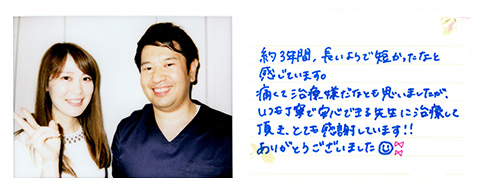 約3年間、長いようで短かったなと
感じています。
痛くて治療嫌だなとも思いましたが、
いつも丁寧で安心できる先生に治療して
頂き、とても感謝しています!!
ありがとうございました